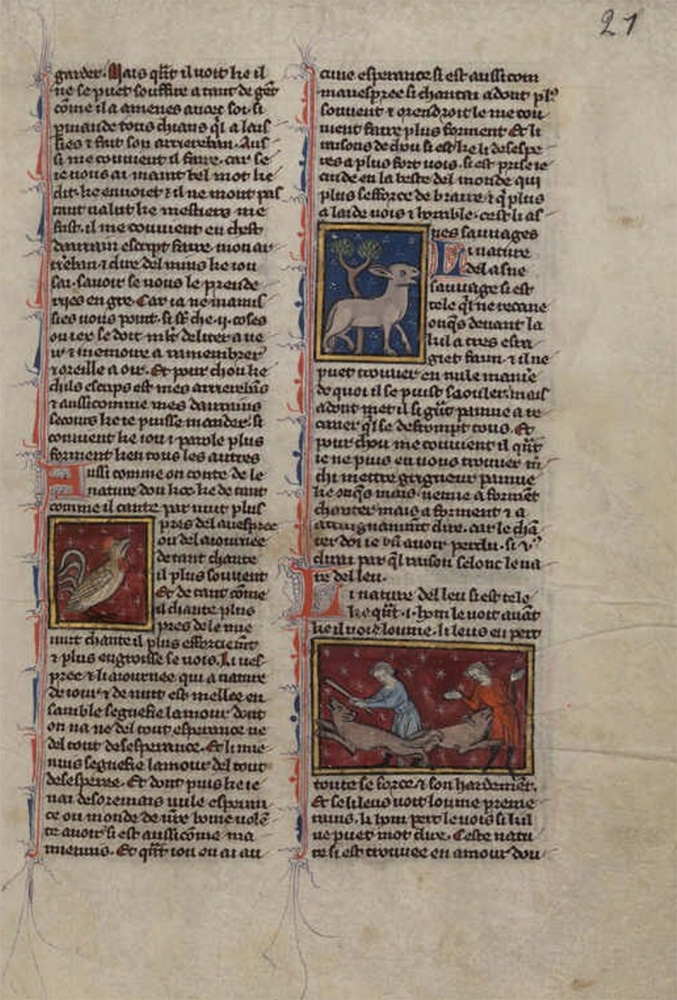 21
garder. Mais qñt il voit ke il
ne se puet souffire a tant de gẽt
cõme il a amenes auoec soi. si
prie a de tous chiaus ql a lais
kies ⁊ fait son arriereban. Aus
si me couuient il faire. car se
ie uous ai maint bel mot ke
dit. ke enuoiet ⁊ il ne mont pas
tant ualut ke mestiers me
fust. il me couuient en chest
daarrain escript faire mon ar
riereban ⁊ dire del miex ke iou
sai. sauoir se uous le prende
ries en gre. Car ia ne mamis
sies uous point. si st̃ che .ij. coses
ou iex se doit ml̃t deliter a ue
ir ⁊ memoire a ramembrer
⁊ oreille a oir. Et pour chou ke
chils escrips est mes arrierebãs
⁊ aussi comme mes daarains
secours ke ie puisse mander. si
couuient ke iou i parole plus
forment ken tous les autres
Aussi comme on conte de le
nature dou koc. ke de tant
comme il cante par nuit plus
pres del auespree
ou del aiournee
de tant chante
il plus souuent
Et de tant cõme
il chante plus
pres de le mie
nuit chante il plus efforciemt̃
⁊ plus engroisse se uois. Li ues
pree ⁊ li aiournee qui a nature
de iour ⁊ de nuit est mellee en
samble senefie lamour dont
on na ne del tout esperance ne
del tout desesperance. Et li mie
nuis senefie lamour del tout
desesperee. Et dont puis ke ie
nai desoremais nule esperan
ce ou monde de ure bone uolẽ
te auoir si est aussi cõme ma
mienuis. Et qñt iou en ai au
cune esperance si est aussi com
mauespree si chantai adont pl9
souuent ⁊ orendroit le me cou
uient faire plus forment Et li
raisons de chou si est ke li desespe
res a plus fort uois. si est prise ie
cuide en la beste del monde qui
plus sefforce de braire ⁊ q̃ plus
a laide uois ⁊ horrible. cest li as
nes sauuages
Li nature
del asne
sauuage si est
tele ql̃ ne recane
onq̃s deuant la
kil a tres esra
giet faim ⁊ il ne
puet trouuer en nule manie
de quoi il se puist saouler. mais
adont met il si grãt painne a re
caner q̃l se desrompt tous. Et
pour chou me couuient il q̃nt
ie ne puis en uous trouuer m̃
chi mettre grigneur painne
ke onq̃s mais. nemie a forment
chanter mais a forment ⁊ a
attaignamnt̃ dire. car le chã
ter doi ie bñ auoir perdu. si v9
dirai par q̃l raison selonc le na
ture del leu.
Li nature del leu si est tele
ke qñt .i. hom le uoit auãt
ke il uoie loume. li leus en pert
toute se force ⁊ son hardement.
Et se li leus uoit loume premie
rains. li hom pert le uois si kil
ne puet mot dire. Ceste natu
re si est trouuee en amour dou